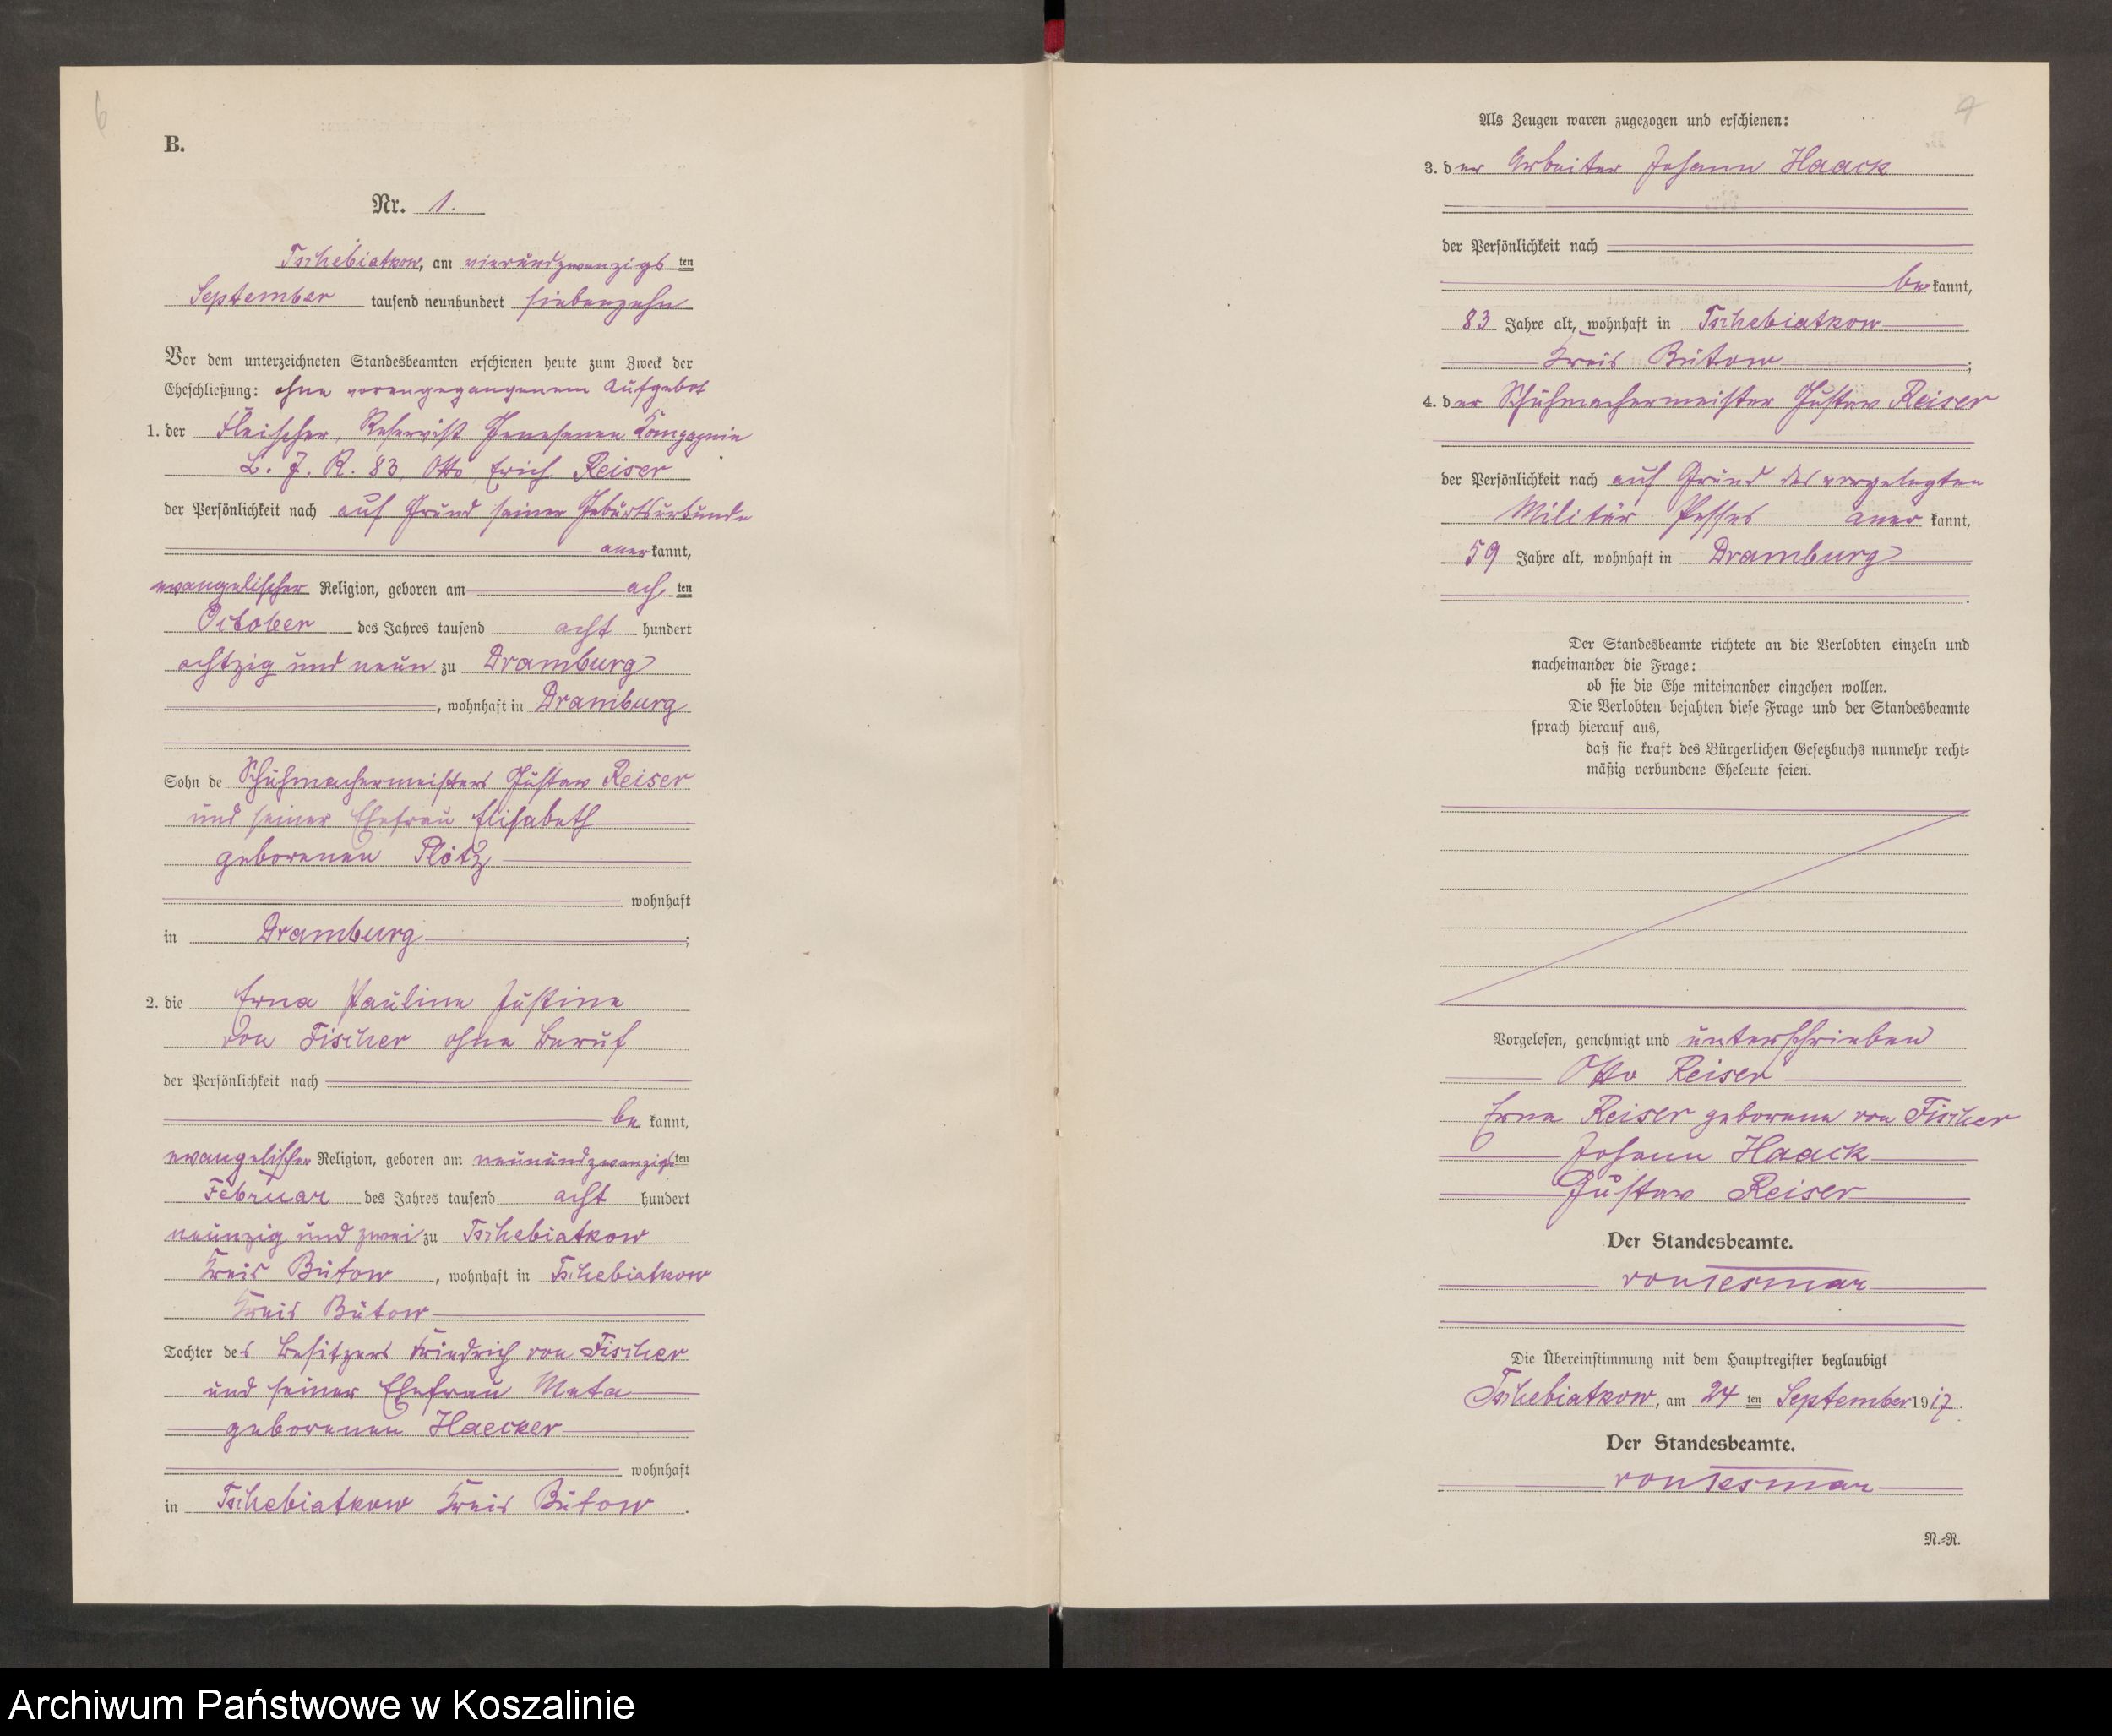 6
B.
Nr. 1.
Tschebiatkow, am vierundzwanzigsten
September tausend neunhundert siebenzehn
Vor dem unterzeichneten Standesbeamten erschienen heute zum Zweck der
Eheschließung: ohne vorangegangenem Aufgebot
1. der Fleischer, Reservist Genesenen Kompagnie
L. J. R. 83, Otto Erich Reiser
der Persönlichkeit nach auf Grund seiner Geburtsurkunde
anerkannt,
evangelischer Religion, geboren am achten
October des Jahres tausend acht hundert
achtzig und neun zu Dramburg
, wohnhaft in Dramburg
Sohn de Schuhmachermeisters Gustav Reiser
und seiner Ehefrau Elisabeth
geborenen Plötz
wohnhaft
in Dramburg ;
2. die Erna Pauline Justine
von Fischer ohne Beruf
der Persönlichkeit nach
be kannt,
evangelischer Religion, geboren am neunundzwanzigsten
Februar des Jahres tausend acht hundert
neunzig und zwei zu Tschebiatkow
Kreis Bütow , wohnhaft in Tschebiatkow
Kreis Bütow
Tochter des Besitzers Friedrich von Fischer
und seiner Ehefrau Meta
geborenen Haecker
wohnhaft
in Tschebiatkow Kreis Bütow .
Als Zeugen waren zugezogen und erschienen:
3. der Arbeiter Johann Haack
der Persönlichkeit nach
be kannt,
83 Jahre alt, wohnhaft in Tschebiatkow
Kreis Bütow ;
4. der Schuhmachermeister Gustav Reiser
der Persönlichkeit nach auf Grund des vorgelegten
Militär Passes anerkannt,
59 Jahre alt, wohnhaft in Dramburg
.
Der Standesbeamte richtete an die Verlobten einzeln und
nacheinander die Frage:
ob sie die Ehe miteinander eingehen wollen.
Die Verlobten bejahten diese Frage und der Standesbeamte
sprach hierauf aus,
daß sie kraft des Bürgerlichen Gesetzbuchs nunmehr recht-
mäßig verbundene Eheleute seien.
Vorgelesen, genehmigt und unterschrieben
Otto Reiser
Erna Reiser geborene von Fischer
Johann Haack
Gustav Reiser
Der Standesbeamte.
von Tesmar
Die Übereinstimmung mit dem Hauptregister beglaubigt
Tschebiatkow, am 24 ten September 1917.
Der Standesbeamte.
von Tesmar
N.-R.
Archiwum Państwowe w Koszalinie